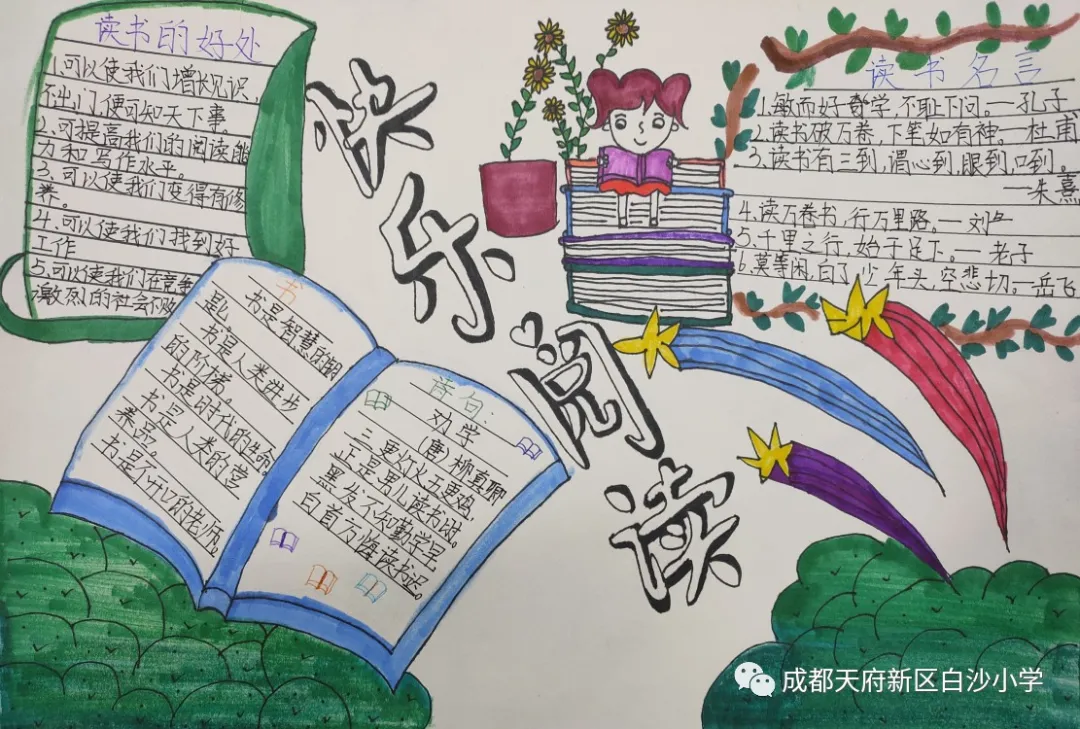 读书的好处
1.可以使我们增长见识,
不出门,便可知天下事。
2.可提高我们的阅读能
力和写作水平。
3.可以使我们变得有修
养。
4.可以使我们找到好
工作
5.可以使我们在竞争
激烈的社会不败
快乐阅读
读书名言
1.敏而好学,不耻下问。—孔子
2.读书破万卷,下笔如有神。—杜甫
3.读书有三到,谓心到,眼到,口到。
—朱熹
4.读万卷书,行万里路。—刘
5.千里之行,始于足下。—老子
6.莫等闲,白了少年头,空悲切。—岳飞
书
书是智慧的钥
匙。
书是人类进步
的阶梯。
书是时代的生命。
书是人类的营
养品。
书是不开口的老师。
诗句:
劝学
(唐)柳真卿
三更灯火五更鸡,
正是男儿读书时。
黑发不知勤学早,
白首方悔读书迟。
成都天府新区白沙小学